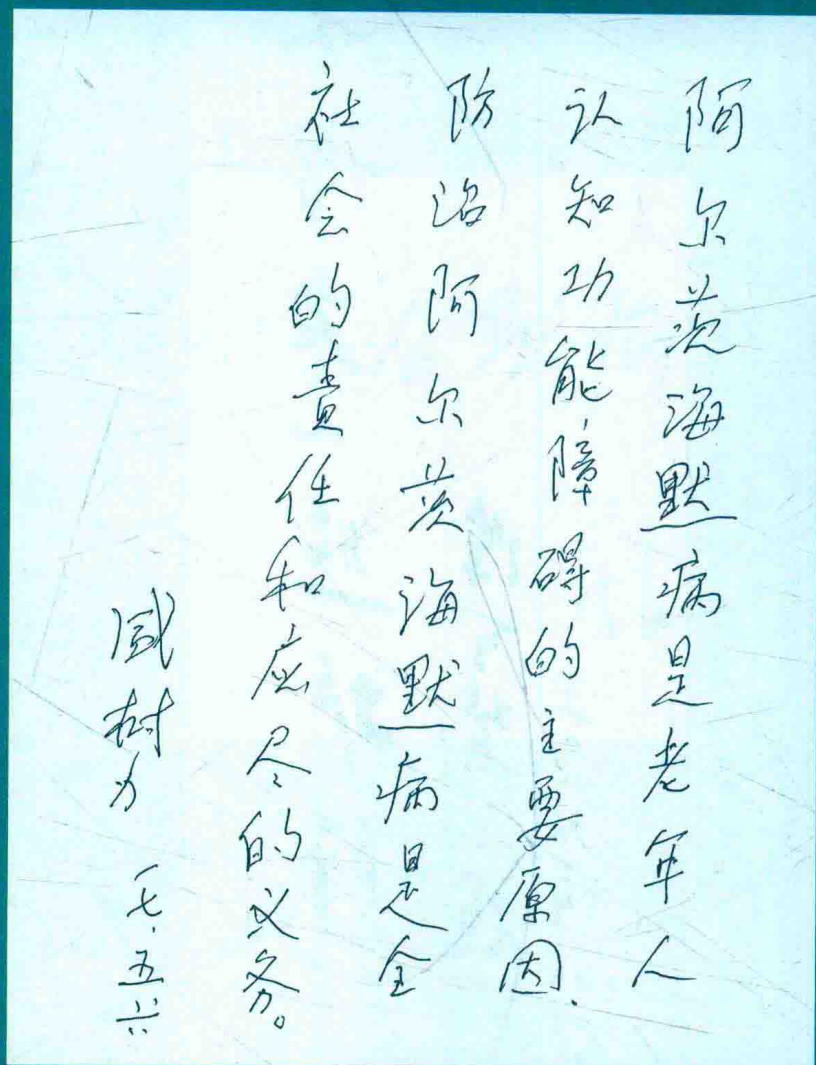 阿尔茨海默病是老年人
认知功能障碍的主要原因、
防治阿尔茨海默病是全
社会的责任和应尽的义务。
盛树力 一七.五.